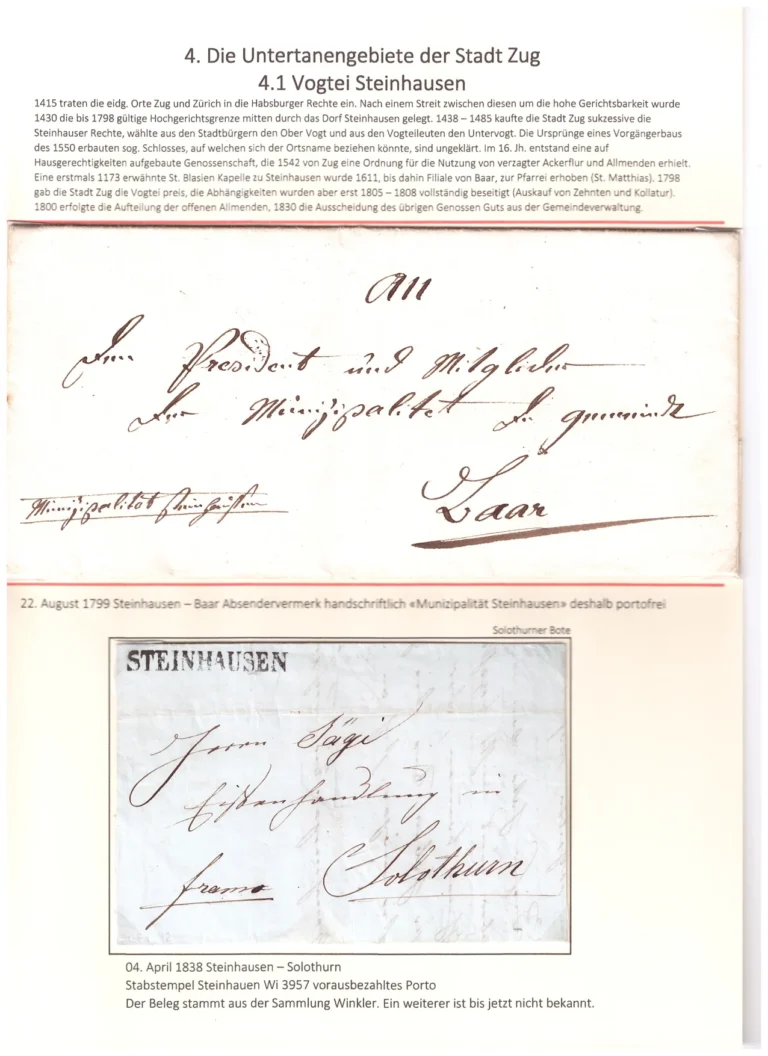 4. Die Untertanengebiete der Stadt Zug
4.1 Vogtei Steinhausen
1415 traten die eidg. Orte Zug und Zürich in die Habsburger Rechte ein. Nach einem Streit zwischen diesen um die hohe Gerichtsbarkeit wurde
1430 die bis 1798 gültige Hochgerichtsgrenze mitten durch das Dorf Steinhausen gelegt. 1438 – 1485 kaufte die Stadt Zug sukzessive die
Steinhauser Rechte, wählte aus den Stadtbürgern den Ober Vogt und aus den Vogteileuten den Untervogt. Die Ursprünge eines Vorgängerbaus
des 1550 erbauten sog. Schlosses, auf welchen sich der Ortsname beziehen könnte, sind ungeklärt. Im 16. Jh. entstand eine auf
Hausgerechtigkeiten aufgebaute Genossenschaft, die 1542 von Zug eine Ordnung für die Nutzung von verzagter Ackerflur und Allmenden erhielt.
Eine erstmals 1173 erwähnte St. Blasien Kapelle zu Steinhausen wurde 1611, bis dahin Filiale von Baar, zur Pfarrei erhoben (St. Matthias). 1798
gab die Stadt Zug die Vogtei preis, die Abhängigkeiten wurden aber erst 1805 – 1808 vollständig beseitigt (Auskauf von Zehnten und Kollatur).
1800 erfolgte die Aufteilung der offenen Allmenden, 1830 die Ausscheidung des übrigen Genossen Guts aus der Gemeindeverwaltung.
An
Den President und Mitglider
Der Münizipalitet Der gemeindt
Baar
Münizipalität Steinhausen
22. August 1799 Steinhausen – Baar Absendervermerk handschriftlich «Munizipalität Steinhausen» deshalb portofrei
Solothurner Bote
STEINHAUSEN
Herrn Jägi
Eissenhandlung in
Solothurn
franco
04. April 1838 Steinhausen – Solothurn
Stabstempel Steinhauen Wi 3957 vorausbezahltes Porto
Der Beleg stammt aus der Sammlung Winkler. Ein weiterer ist bis jetzt nicht bekannt.